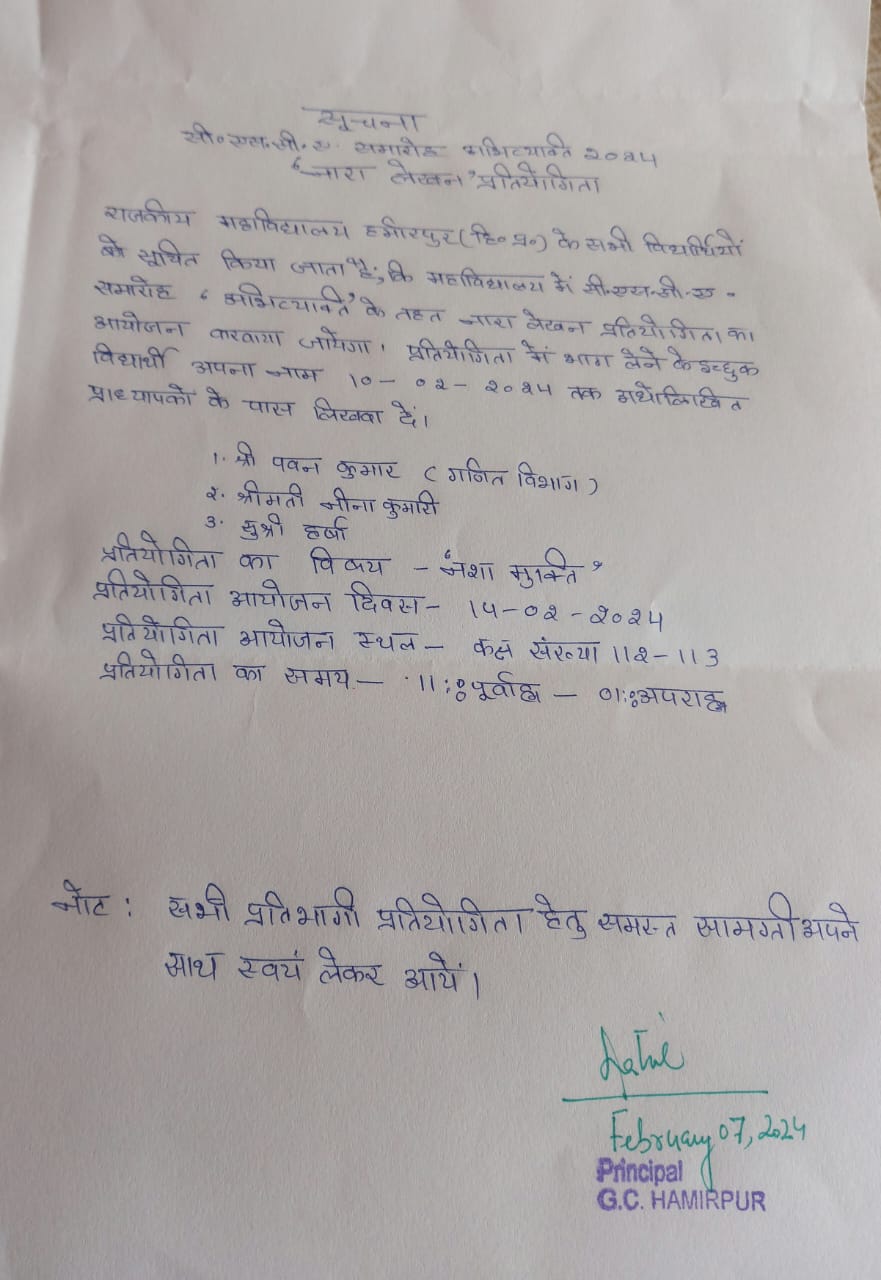 सूचना
सी०एस.सी.ए. समारोह अभिव्यक्ति २०२४
'नारा लेखन' प्रतियोगिता
राजकीय महाविद्यालय हमीरपुर (हि० प्र०) के सभी विद्यार्थियों
को सूचित किया जाता है, कि महाविद्यालय में सी.एस.सी.ए.
समारोह 'अभिव्यक्ति' के तहत नारा लेखन प्रतियोगिता का
आयोजन करवाया जायेगा। प्रतियोगिता में भाग लेने के इच्छुक
विद्यार्थी अपना नाम १०-०२-२०२४ तक अधोलिखित
प्राध्यापकों के पास लिखवा दें।
1. श्री पवन कुमार (गणित विभाग)
२. श्रीमती नीना कुमारी
३. सुश्री हर्षा
प्रतियोगिता का विषय - 'नशा मुक्ति'
प्रतियोगिता आयोजन दिवस - १५-०२-२०२४
प्रतियोगिता आयोजन स्थल - कक्ष संख्या 11२-113
प्रतियोगिता का समय - 11:00 पूर्वाह्न - 01:00 अपराह्न
नोट : सभी प्रतिभागी प्रतियोगिता हेतु समस्त सामग्री अपने
साथ स्वयं लेकर आयें।
February 07, 2024
Principal
G.C. HAMIRPUR